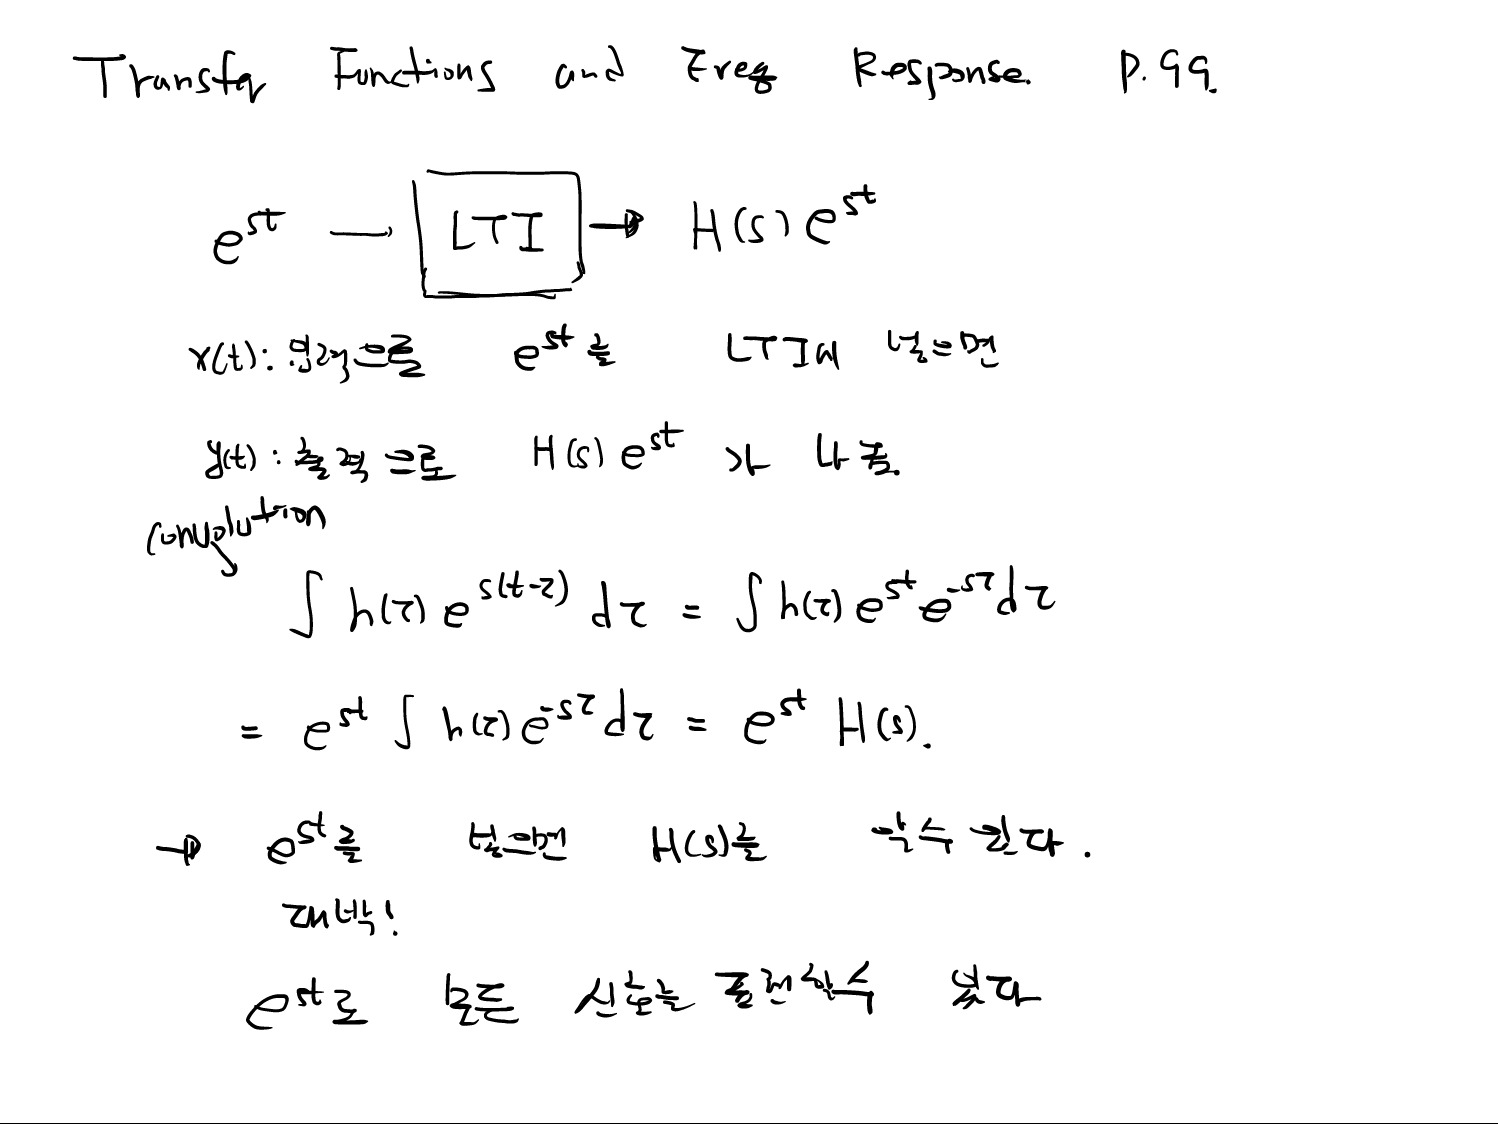 Transfer Functions and Freq Response. P.99.
e^{st} → LTI → H(s) e^{st}
x(t): 입력으로 e^{st}를 LTI에 넣으면
y(t): 출력으로 H(s) e^{st} 가 나옴.
convolution
∫ h(τ) e^{s(t-τ)} dτ = ∫ h(τ) e^{st} e^{-sτ} dτ
= e^{st} ∫ h(τ) e^{-sτ} dτ = e^{st} H(s).
→ e^{st}를 넣으면 H(s)를 알수 있다.
대박!
e^{st}로 모든 신호를 표현할수